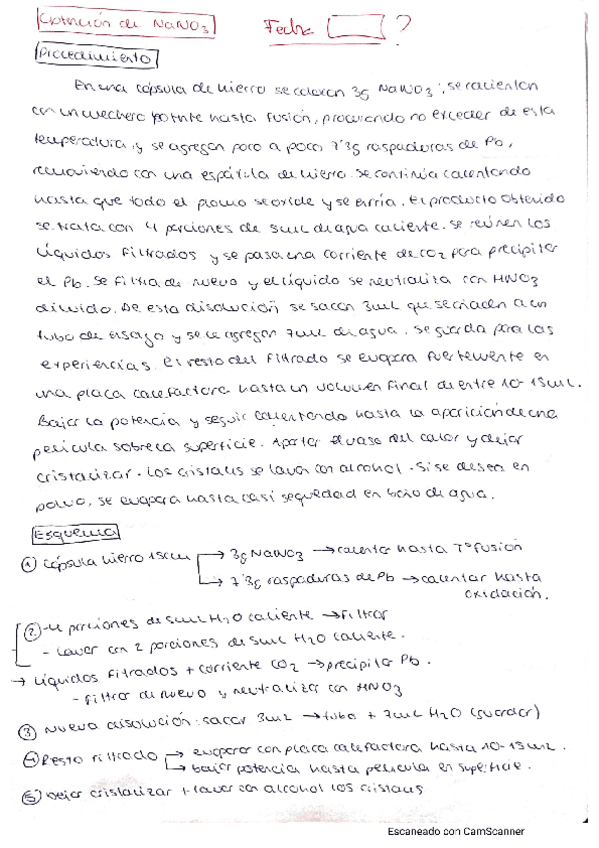 Obtención de NaNO3 Fecha ?
Procedimiento
En una cápsula de hierro se colocan 3g NaNO3, se calientan
con un mechero potente hasta fusión, procurando no exceder de esta
temperatura, y se agregan poco a poco 7'3g raspaduras de Pb,
removiendo con una espátula de hierro. Se continúa calentando
hasta que todo el plomo se oxide y se enfría. El producto obtenido
se trata con 4 porciones de 5mL de agua caliente. Se reúnen los
líquidos filtrados y se pasa una corriente de CO2 para precipitar
el Pb. Se filtra de nuevo y el líquido se neutraliza con HNO3
diluido. De esta disolución se sacan 3mL que se añaden a un
tubo de ensayo y se le agregan 7mL de agua. Se guarda para las
experiencias. El resto del filtrado se evapora fuertemente en
una placa calefactora hasta un volumen final de entre 10-15mL.
Bajar la potencia y seguir calentando hasta la aparición de una
película sobre la superficie. Apartar el vaso del calor y dejar
cristalizar. Los cristales se lavan con alcohol. Si se desea en
polvo, se evapora hasta casi sequedad en baño de agua.
Esquema
① Cápsula hierro 15cm → 3g NaNO3 → calentar hasta Tª fusión
→ 7'3g raspaduras de Pb → calentar hasta
oxidación.
② - 4 porciones de 5mL H2O caliente → filtrar
- Lavar con 2 porciones de 5mL H2O caliente.
→ Líquidos filtrados + corriente CO2 → precipitar Pb.
- filtrar de nuevo y neutralizar con HNO3
③ Nueva disolución: sacar 3mL → tubo + 7mL H2O (guardar)
④ Resto filtrado → evaporar con placa calefactora hasta 10-15mL.
→ bajar potencia hasta película en superficie.
⑤ Dejar cristalizar + lavar con alcohol los cristales
Escaneado con CamScanner